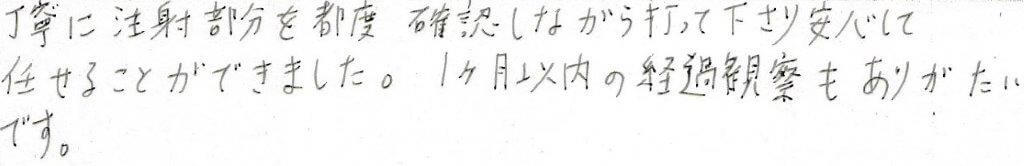 丁寧に注射部分を都度 確認しながら打って下さり安心して
任せることができました。1ヶ月以内の経過観察もありがたい
です。